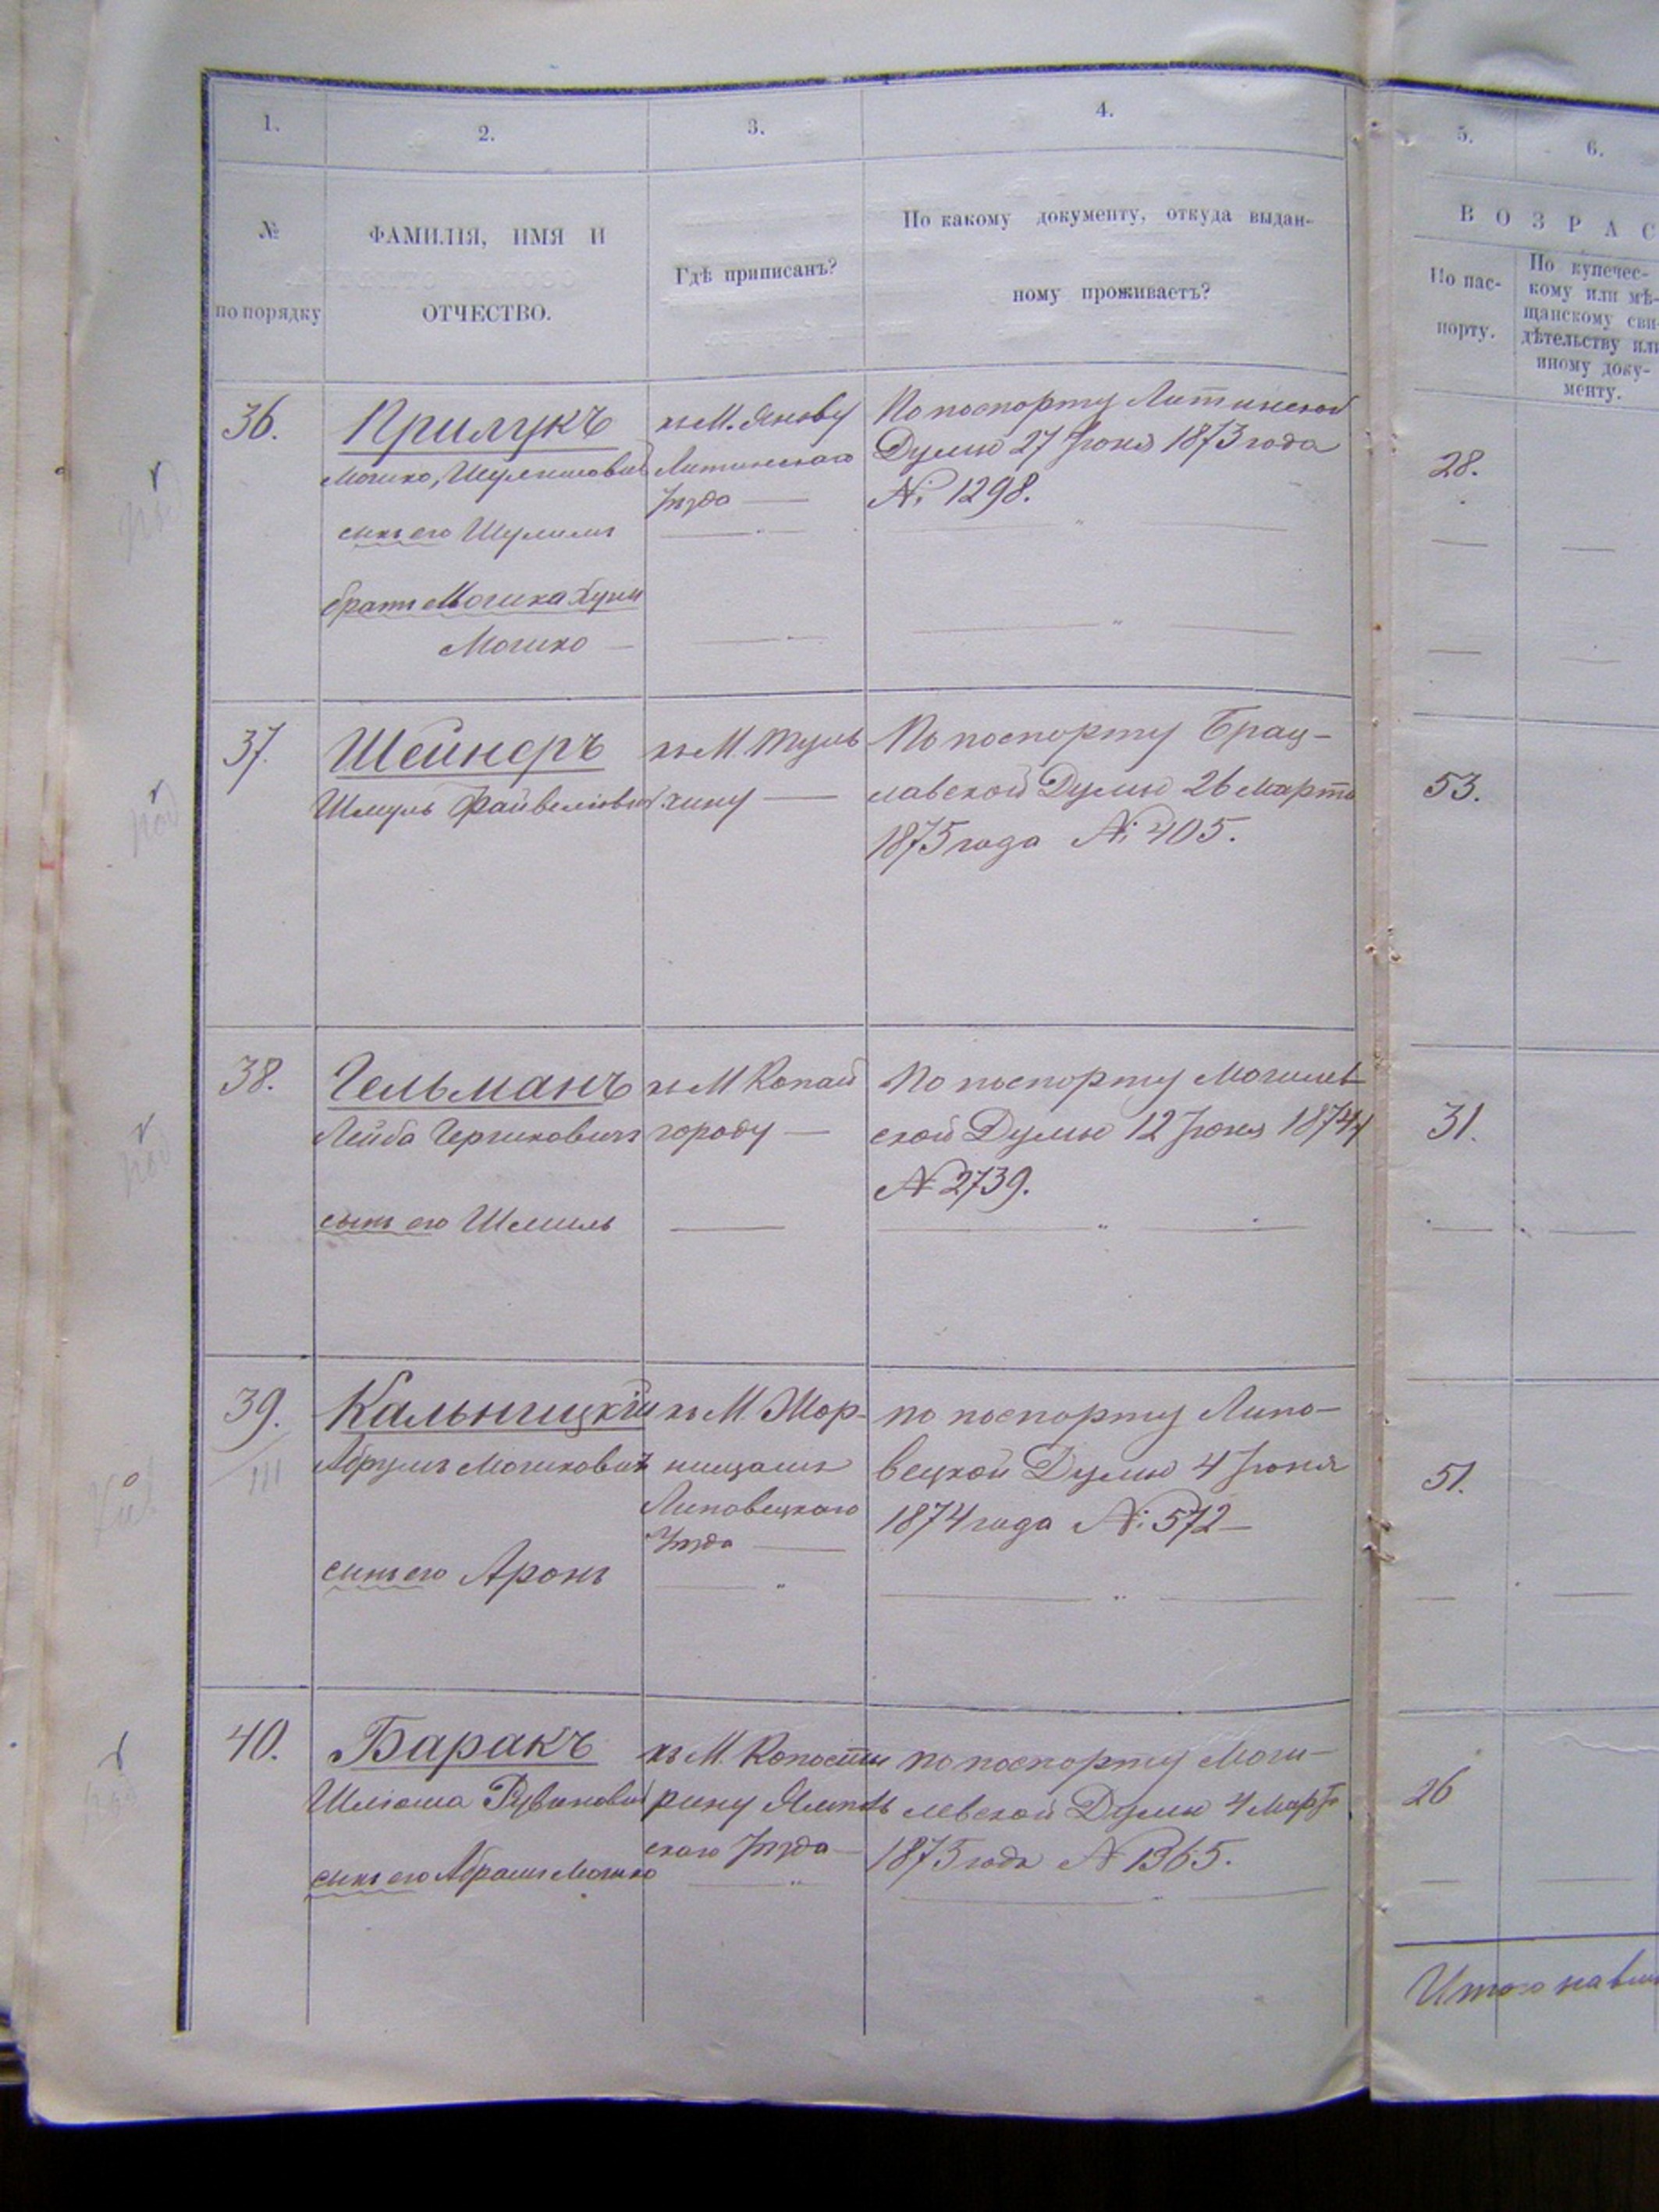 1.
2.
3.
4.
5.
6.
№
по порядку
ФАМИЛІЯ, ИМЯ И
ОТЧЕСТВО.
Гдѣ приписанъ?
По какому документу, откуда выдан-
ному проживаетъ?
ВОЗРАС
По пас-
порту.
По купечес-
кому или мѣ-
щанскому сви-
дѣтельству или
иному доку-
менту.
36.
Прилукъ
Мошко, Шулимовичъ
сынъ его Шулимъ
братъ Мошка Хуня
Мошко —
къ М. Янову
Литинскаго
Уѣзда —
По паспорту Литинской
Думы 27 Іюня 1873 года
№ 1298.
28.
37.
Шейнеръ
Шмуль Файвелювич
къ М. Туль
чину —
По паспорту Брац-
лавской Думы 26 Марта
1875 года № 405.
53.
38.
Гельманъ
Лейба Гершковичъ
сынъ его Шмиль
къ М Копай
городу —
По паспорту Могилев
ской Думы 12 Іюня 1874
№ 2739.
31.
39.
III
Кальницкій
Абрумъ Мошковичъ
сынъ его Аронъ
къ М. Жор-
нищамъ
Липовецкаго
Уѣзда —
по паспорту Липо-
вецкой Думы 4 Іюня
1874 года № 572 —
51.
40.
Баракъ
Шлюма Рувинович
сынъ его Абрамъ Мошко
къ М.
рину
скаго Уѣзда —
по паспорту Моги-
левской Думы 4 Марта
1875 года № 1365.
26
Итого на